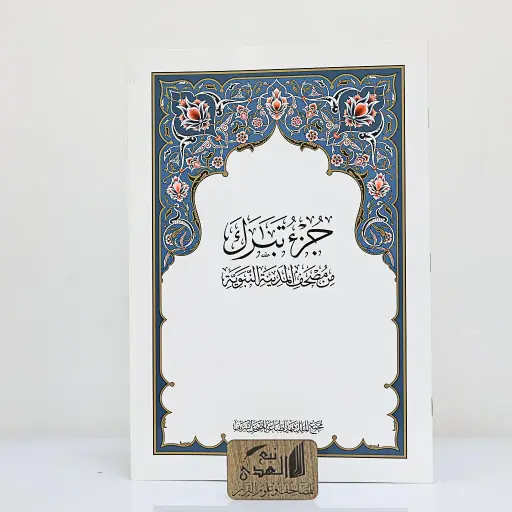 جُزْءُ تَبَٰرَكَ
مِنْ مُصْحَفِ المَدِينَةِ النَّبَوِيَّةِ
مجمع الملك فهد لطباعة المصحف الشريف
نبع
الهدى
للمصاحف وعلوم القرآن